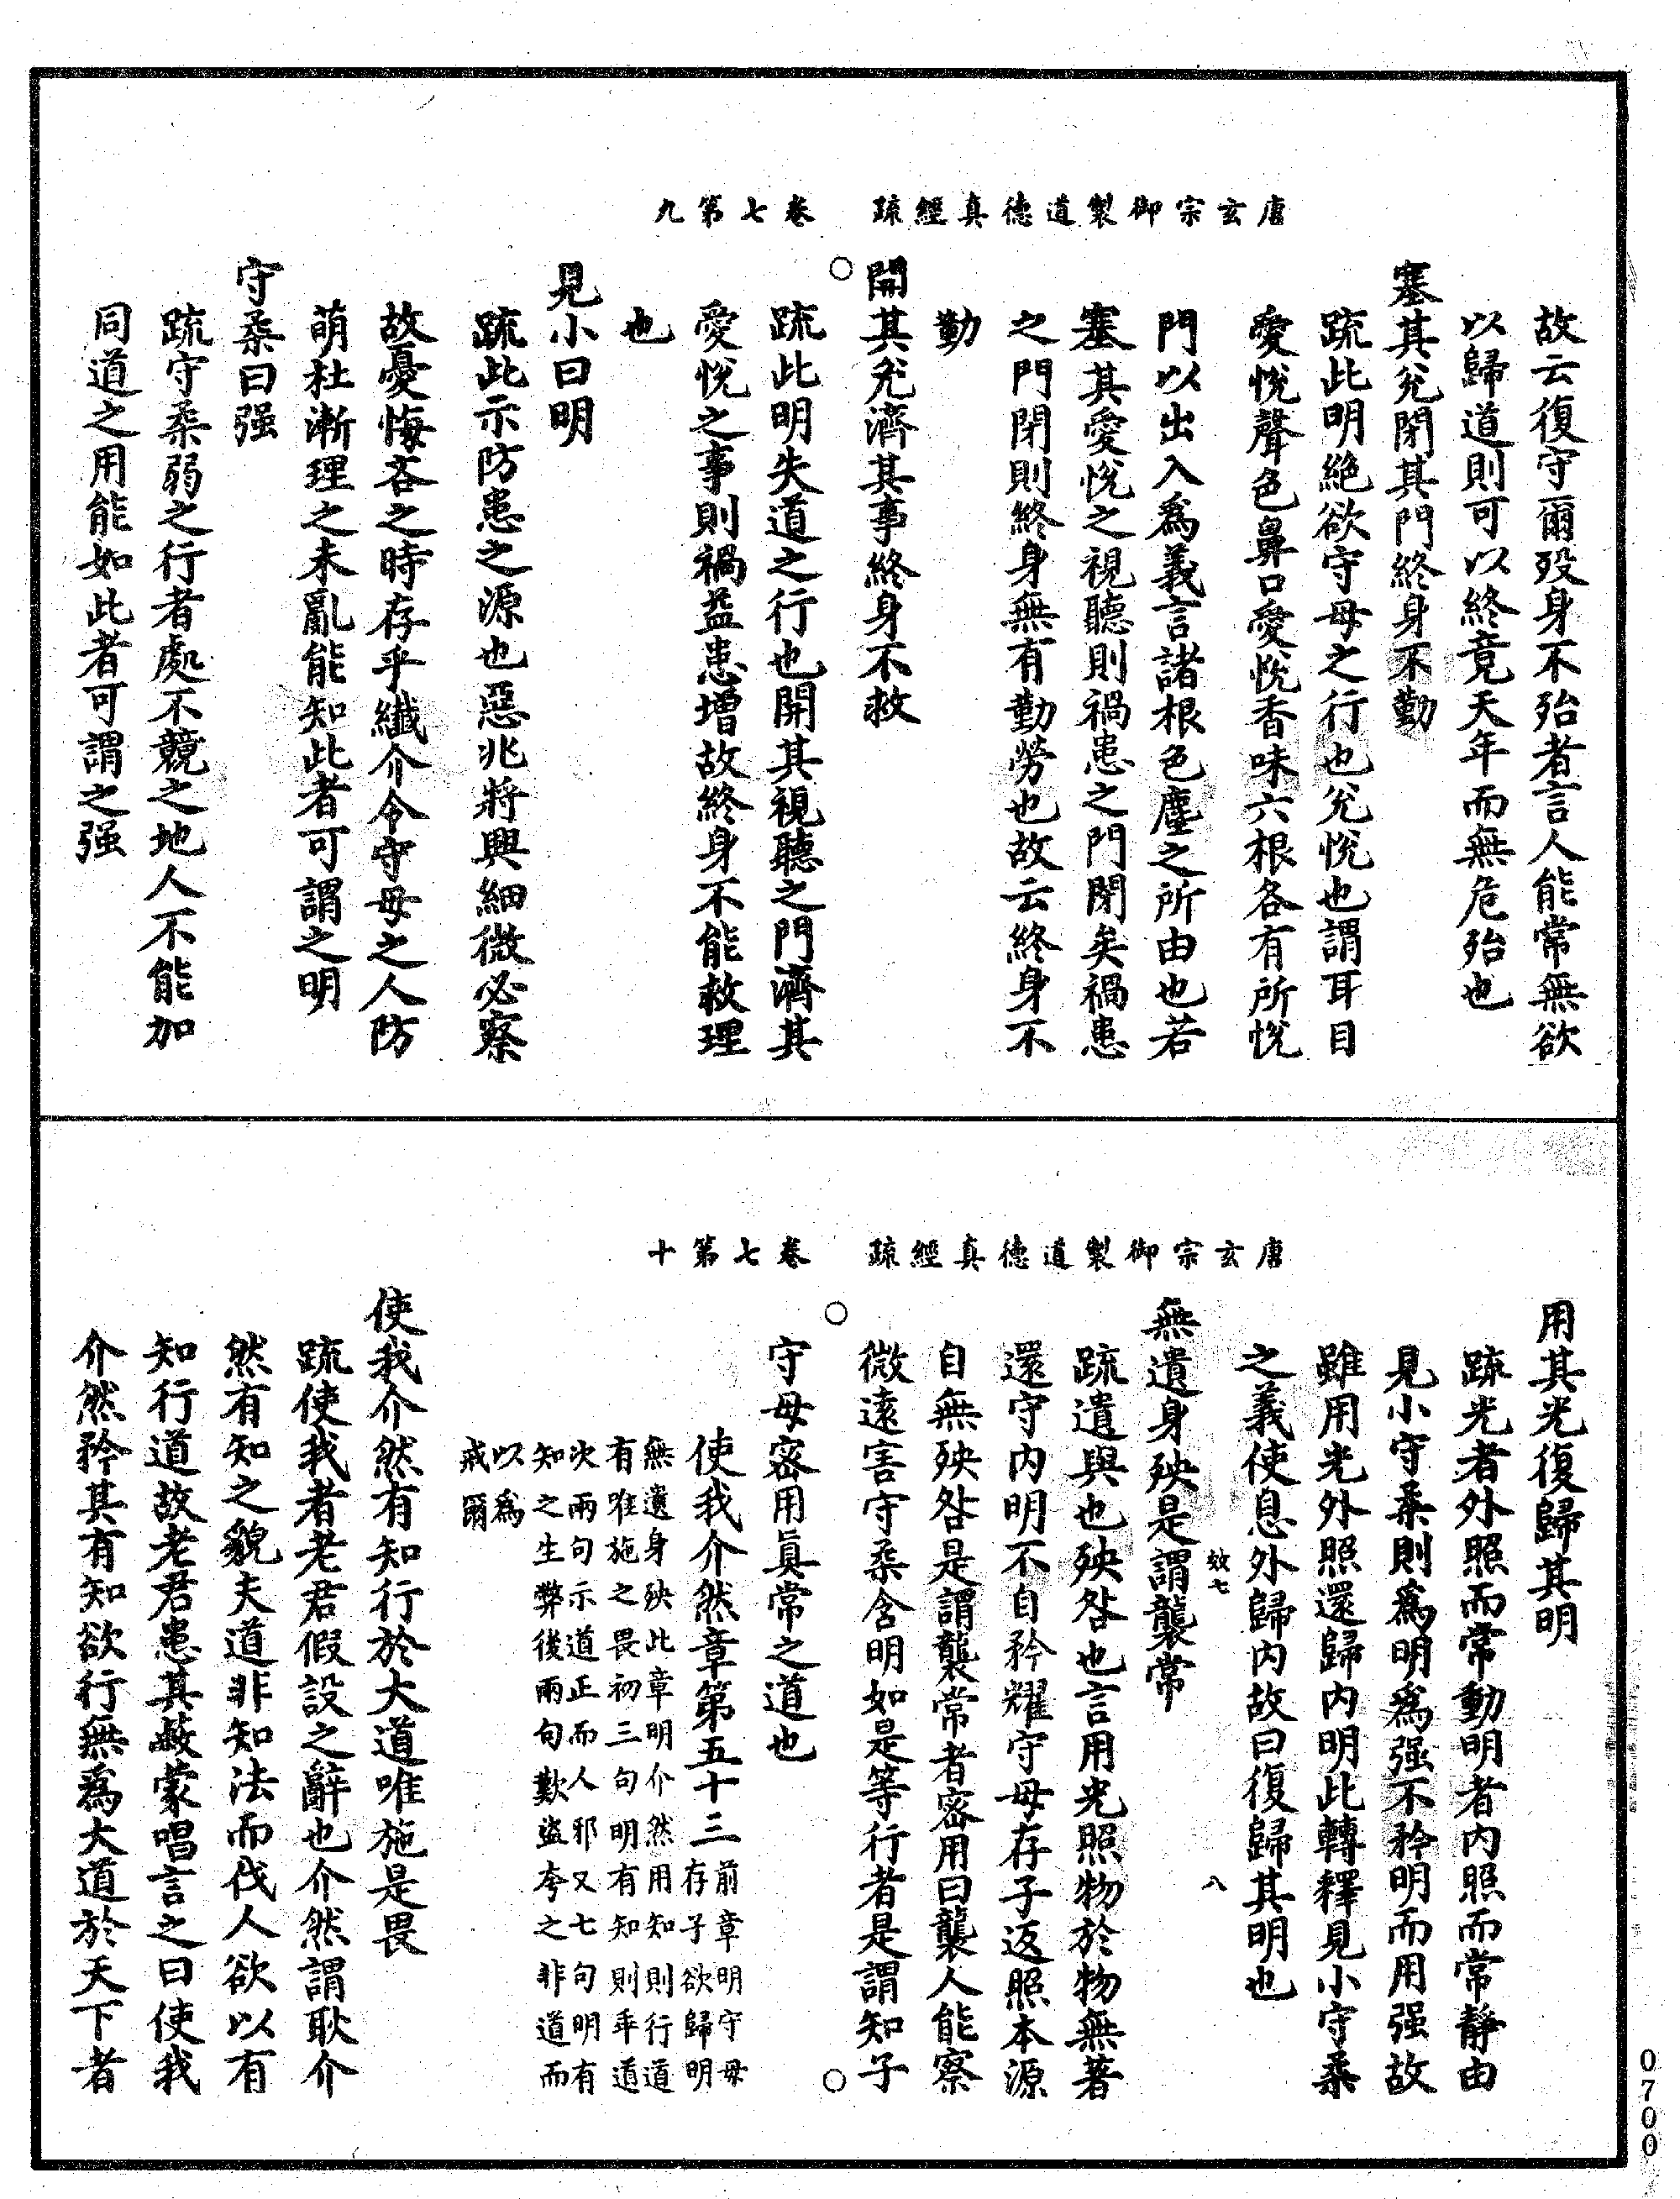 唐玄宗御製道德真經疏　卷七第九
故云復守爾殁身不殆者言人能常無欲
以歸道則可以終竟天年而無危殆也
塞其兌閉其門終身不勤
疏此明絶欲守母之行也兌悅也謂耳目
愛悅聲色鼻口愛悅香味六根各有所悅
門以出入爲義言諸根色塵之所由也若
塞其愛悅之視聽則禍患之門閉矣禍患
之門閉則終身無有勤勞也故云終身不
勤
開其兌濟其事終身不救
疏此明失道之行也開其視聽之門濟其
愛悅之事則禍益患增故終身不能救理
也
見小曰明
疏此示防患之源也惡兆將興細微必察
故憂悔吝之時存乎纖介令守母之人防
萌杜漸理之未亂能知此者可謂之明
守柔曰强
疏守柔弱之行者處不競之地人不能加
同道之用能如此者可謂之强
唐玄宗御製道德真經疏　卷七第十
用其光復歸其明
疏光者外照而常動明者内照而常静由
見小守柔則爲明爲强不矜明而用强故
雖用光外照還歸内明此轉釋見小守柔
之義使息外歸内故曰復歸其明也
效七　八
無遺身殃是謂襲常
疏遺與也殃咎也言用光照物於物無著
還守内明不自矜耀守母存子返照本源
自無殃咎是謂襲常者密用曰襲人能察
微遠害守柔含明如是等行者是謂知子
守母密用真常之道也
使我介然章第五十三
前章明守母
存子欲歸明
無遺身殃此章明介然用知則行道
有唯施之畏初三句明有知則乖道
次兩句示道正而人邪又七句明有
知之生弊後兩句歎盜夸之非道而
以爲
戒爾
使我介然有知行於大道唯施是畏
疏使我者老君假設之辭也介然謂耿介
然有知之貌夫道非知法而伐人欲以有
知行道故老君患其蔽蒙唱言之曰使我
介然矜其有知欲行無爲大道於天下者
0700